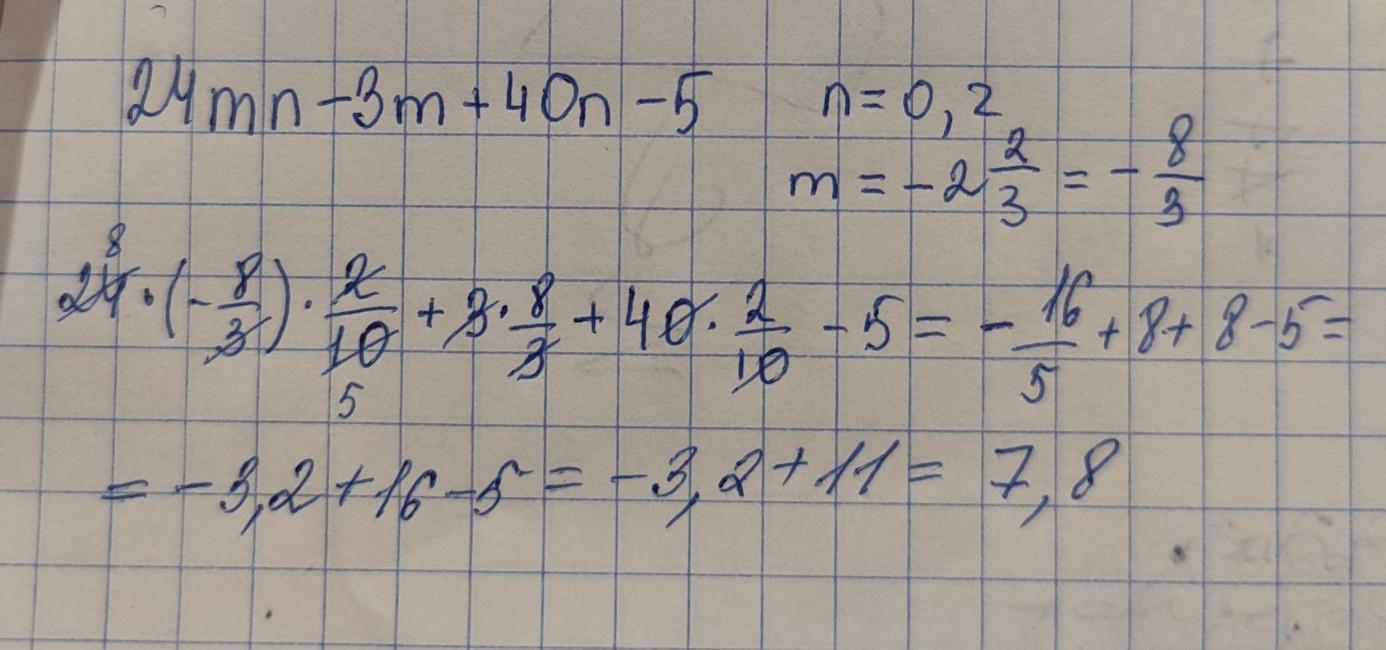 24mn-3m+40n-5 n=0,2
m=-2 2/3 = - 8/3
8
24·(-8/3)·2/10+3·8/3+40·2/10-5=-16/5+8+8-5=
5
=-3,2+16-5=-3,2+11=7,8